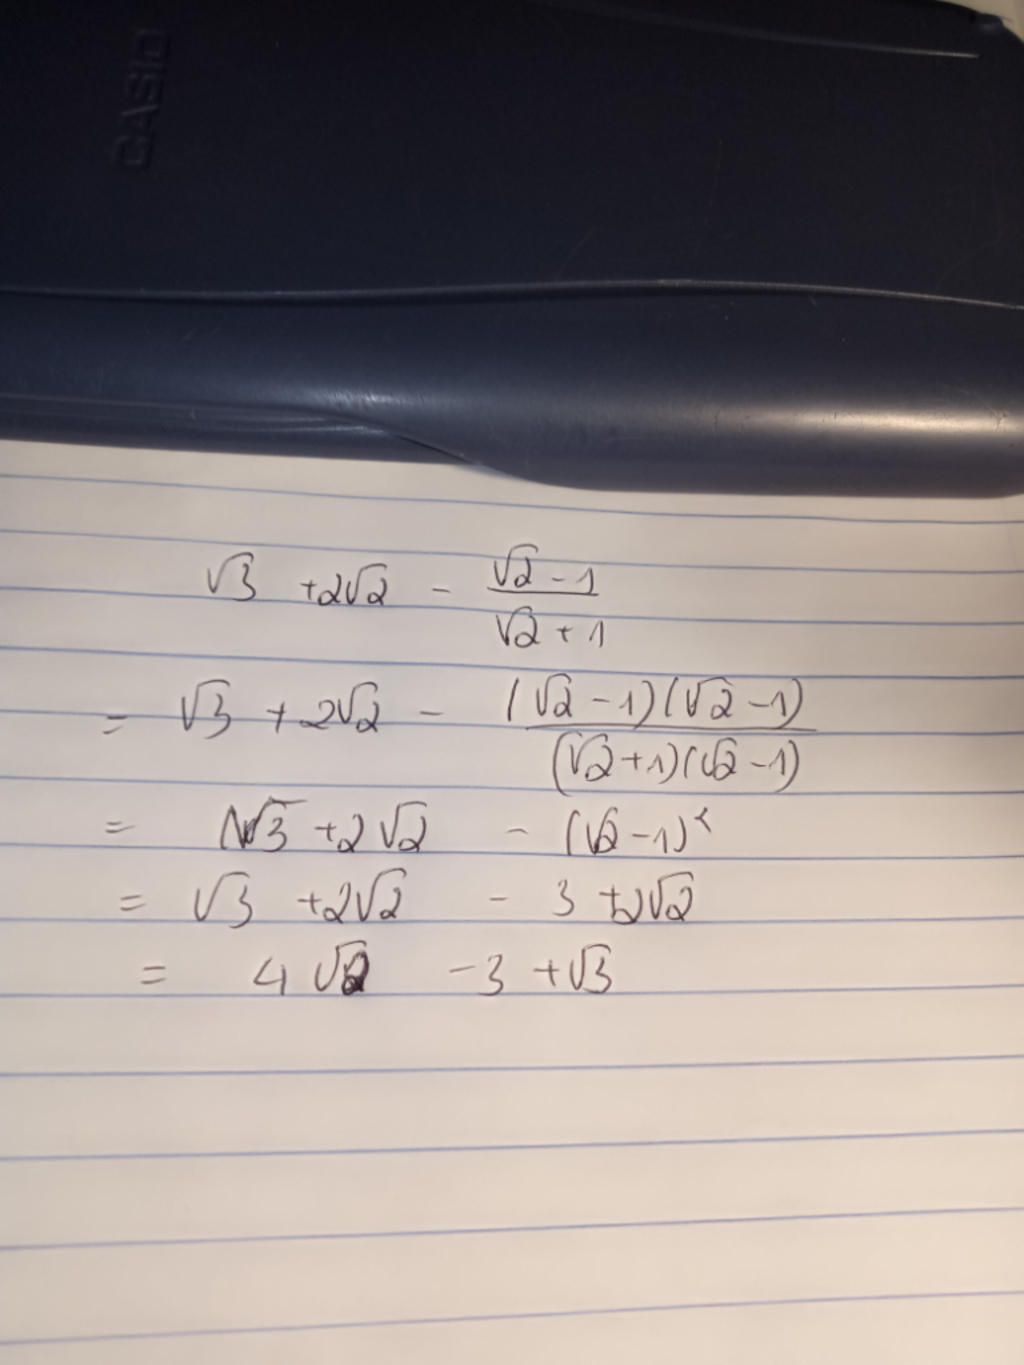 CASIO
√3 + 2√2 - (√2 - 1)/(√2 + 1)
= √3 + 2√2 - ((√2 - 1)(√2 - 1))/((√2 + 1)(√2 - 1))
= √3 + 2√2 - (√2 - 1)²
= √3 + 2√2 - 3 + 2√2
= 4√2 - 3 + √3